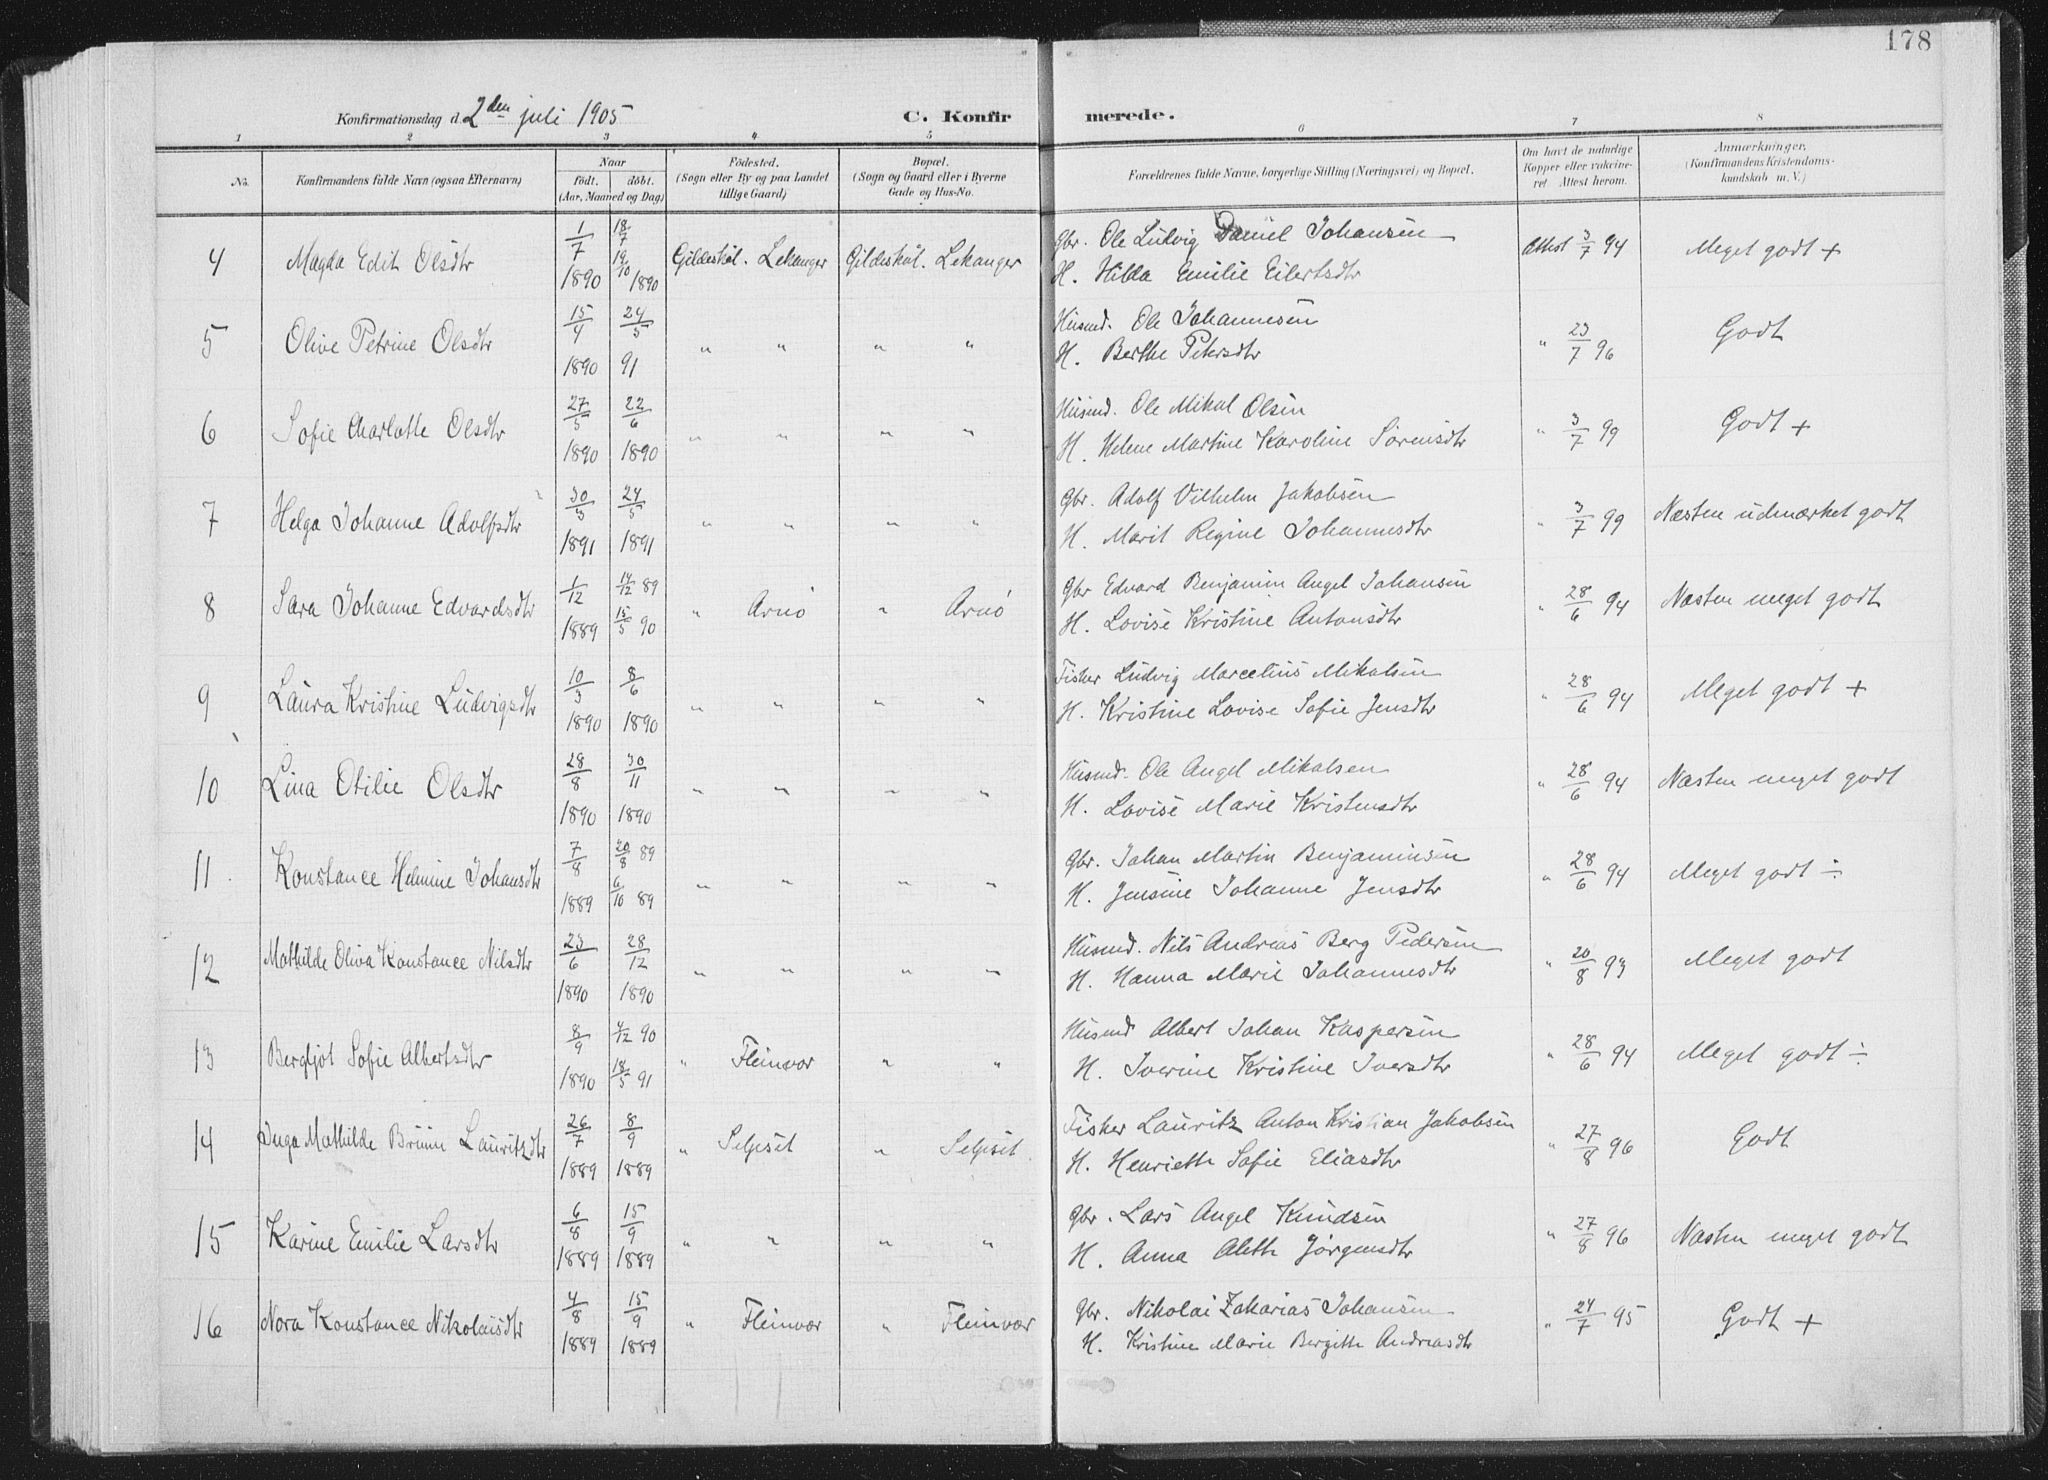 178
Konfirmationsdag d. 2den juli 1905
C. Konfirmerede.
1 2 3 4 5 6 7 8
No. Konfirmandens fulde Navn (ogsaa Efternavn) Naar født. døbt. (Aar, Maaned og Dag) Födested. (Sogn eller By og paa Landet tillige Gaard) Bopæl. (Sogn og Gaard eller i Byerne Gade og Hus-No. Forældrenes fulde Navne, borgerlige Stilling (Næringsvei) og Bopæl. Om havt de naturlige Kopper eller vakcineret Attest herom. Anmærkninger. (Konfirmandens Kristendomskundskab m. V.)
4 Magda Edit Olsdtr 1/7 1890 18/7 19/10 1890 Gildeskål. Lekanger Gildeskål. Lekanger Gbr. Ole Ludvig Daniel Johansen Attest 3/7 94 Meget godt +
H. Hilda Emilie Eilertsdtr
5 Olive Petrine Olsdtr 15/4 1890 24/5 91 " " " " Husmd. Ole Johannesen " 23/7 96 Godt
H. Berthe Petersdtr
6 Sofie Charlotte Olsdtr 27/5 1890 22/6 1890 " " " " Husmd. Ole Mikal Olsen " 3/7 99 Godt +
H. Helene Martine Karoline Sørensdtr
7 Helga Johanne Adolfsdtr 30/3 1891 24/5 1891 " " " " Gbr. Adolf Vilhelm Jakobsen " 3/7 99 Næsten udmærket godt
H. Marit Regine Johannesdtr
8 Sara Johanne Edvardsdtr 1/12 1889 14/12 89 15/5 90 " Arnö " Arnö Gbr Edvard Benjamin Angel Johansen " 28/6 94 Næsten meget godt
H. Lovise Kristine Antonsdtr
9 Laura Kristine Ludvigsdtr 10/3 1890 8/6 1890 " " " " Fisker Ludvig Marcelius Mikalsen " 28/6 94 Meget godt +
H. Kristine Lovise Sofie Jensdtr
10 Lina Otilie Olsdtr 28/8 1890 30/11 1890 " " " " Husmd. Ole Angel Mikalsen " 28/6 94 Næsten meget godt
H. Lovise Marie Kristensdtr
11. Konstance Helmine Johansdtr 7/8 1889 20/8 89 6/10 89 " " " " Gbr. Johan Martin Benjaminsen " 28/6 94 Meget godt ÷
H. Jensine Johanne Jensdtr
12 Mathilde Oliva Konstance Nilsdtr 23/6 1890 28/12 1890 " " " " Husmd. Nils Andreas Berg Pedersen " 20/8 93 Meget godt
H. Hanna Marie Johannesdtr
13 Bergljot Sofie Albertsdtr 8/9 1890 4/12 90 18/5 91 " Fleinvær " " Husmd Albert Johan Kaspersen " 28/6 94 Meget godt ÷
H. Iverine Kristine Iversdtr
14 Inga Mathilde Bruun Lauritzdtr 26/7 1889 8/9 1889 " Selpset " Selpset. Fisker Lauritz Anton Kristian Jakobsen " 27/8 96 Godt
H. Henriette Sofie Eliasdtr
15 Karine Emilie Larsdtr 6/8 1889 15/9 1889 " " " " Gbr. Lars Angel Knudsen " 27/8 96 Næsten meget godt
H. Anna Aleth Jørgensdtr
16 Nora Konstance Nikolaisdtr 4/8 1889 15/9 1889 " Fleinvær " Fleinvær Gbr. Nikolai Zakarias Johansen " 24/7 95 Godt +
H. Kristine Marie Bergitte Andreasdtr